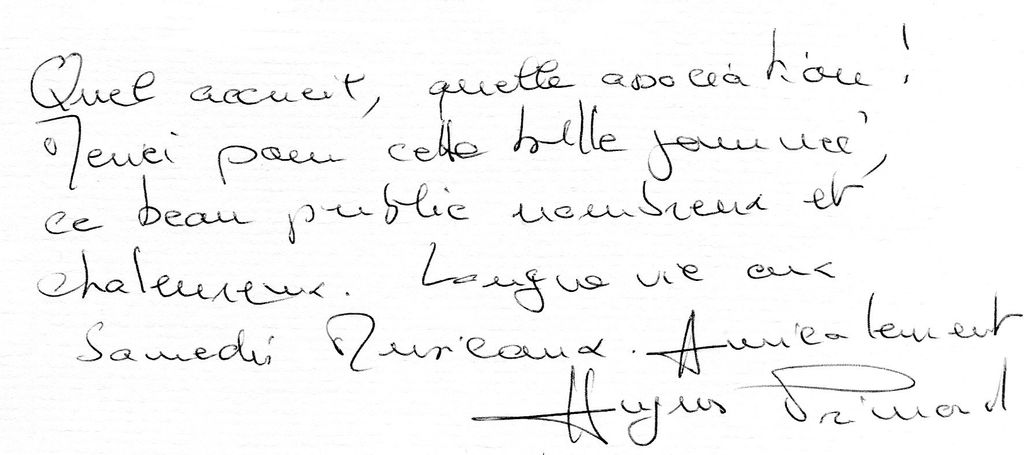 Quel accueil, quelle association !
Merci pour cette belle journée,
ce beau public nombreux et
chaleureux. Longue vie aux
Samedis Musicaux. Amicalement
Hugues